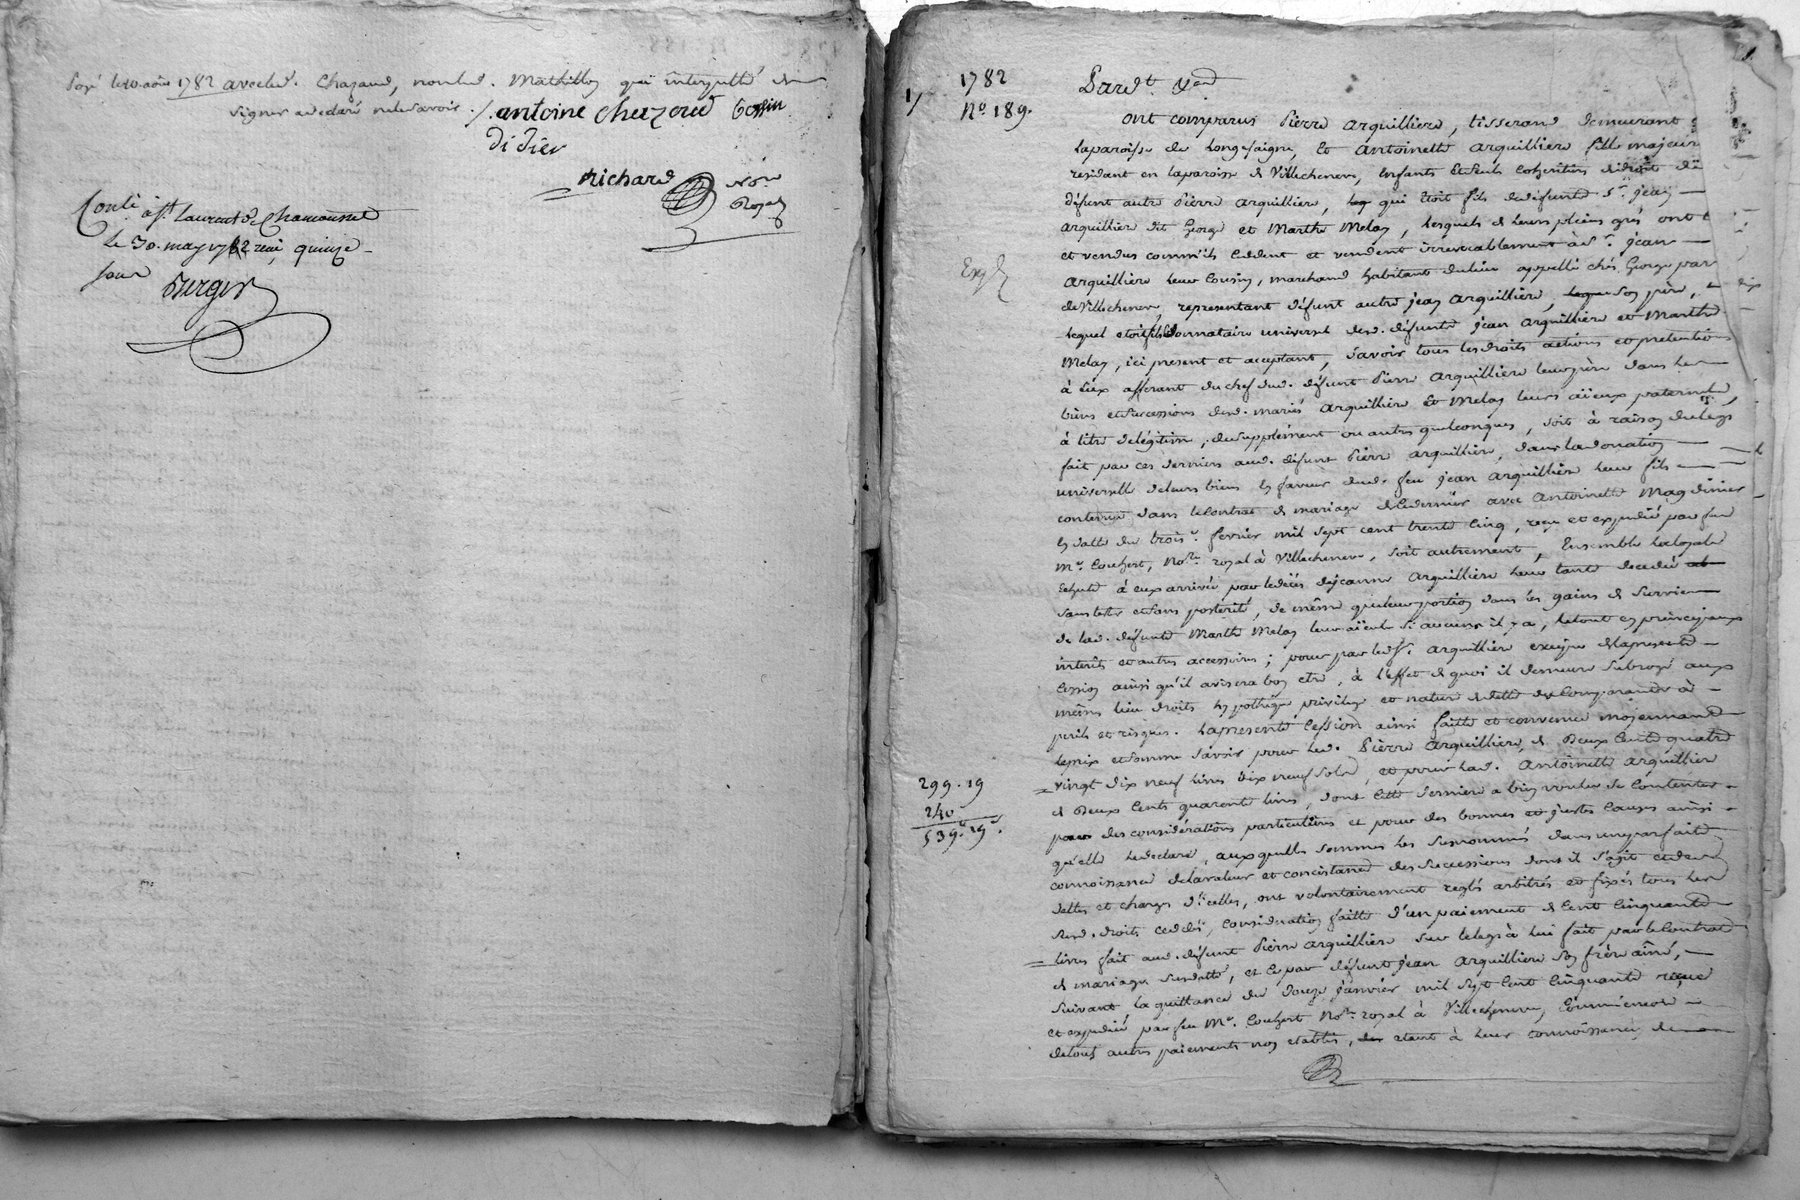 1782 avec led. Chazaud, non led. Mathillon qui interpellé de
signer a declaré ne le savoir ./.
antoine Chazaud
didier
Richard Nore
Royal
Conlé à st Laurent de Chamousset
le 30. may 1782 reçu quinze
sous
1782
No. 189.
1/
Pardt
ont comparus Pierre Arquilliere, tisserand demeurant
la paroisse de Longessaigne, et Antoinette Arquilliere fille majeure
residant en la paroisse de Villecheneve, enfants et seuls cohéritiers de droit de
défunt autre Pierre Arquilliere, qui étoit fils de défunts Sr. Jean
Arquilliere dit George et Marthe Melay, lesquels de leurs pleins grés ont
et vendus comm'ils cedent et vendent irrevocablement à Sr. Jean
Arquilliere leur cousin, marchand habitant du lieu appellé chés George par
de Villecheneve, representant défunt autre Jean Arquilliere, son père,
lequel etoit fils donnataire universel desd. défunts Jean Arquilliere et Marthe
Melay, ici present et acceptant, savoir tous les droits actions et pretentions
à eux afferant du chef dud. défunt Pierre Arquilliere leur père dans les
biens et successions desd. mariés Arquilliere et Melay leurs aïeux paternels,
à titre de légitime, de supplément ou autres quelconques, soit à raison du legs
fait par ces derniers aud. défunt Pierre Arquilliere, dans la donation
universelle de leurs biens en faveur dud. feu Jean Arquilliere leur fils
contenue dans le contrat de mariage de ce dernier avec Antoinette Magdinier
en datte du trois fevrier mil sept cent trente cinq, reçu et expedié par feu
Me. Couhert, Nore. royal à Villecheneve, soit autrement, Ensemble la
echute à eux arrivée par le décès de Jeanne Arquilliere leur tante decedée
sans tester et sans posterité, de même que leur portion dans les gains de survie
de lad. défunte Marthe Melay leur aïeule si aucuns il y a, le tout en principaux
interêts et autres accessoires; pour par led. Sr. Arquilliere de la presente
cession ainsi qu'il avisera bon etre, à l'effet de quoi il demeure subrogé aux
mêmes lieu droits hypothèque privilege et nature de dette des comparants à
perils et risques. La presente cession ainsi faitte et convenue moyennant
le prix et somme savoir pour led. Pierre Arquilliere, de Deux Cents quatre
vingt dix neuf livres dix neuf sols, et pour lad. Antoinette Arquilliere
de Deux cents quarente livres, dont cette derniere a bien voulu se contenter
pour des considérations particulières et pour des bonnes et justes causes ainsi
qu'elle le declare, auxquelles sommes les susnommés dans une parfaite
connoissance de la valeur et concistance des successions dont il s'agit et des
dettes et charges d'icelles, ont volontairement reglés arbitrés et fixés tous les
susd. droits cedés, consideration faitte d'un paiement de cent cinquante
livres fait aud. défunt Pierre Arquilliere sur le legs à lui fait par le contrat
de mariage susdatté, et ce par défunt Jean Arquilliere son frère ainé,
suivant la quittance du douze janvier mil sept cent cinquante reçue
et expediée par feu Me. Couhert Nore. royal à Villecheneve,
de tous autres paiements non etablis, etant à leur connoissance, de
299. 19
240
539. 19.